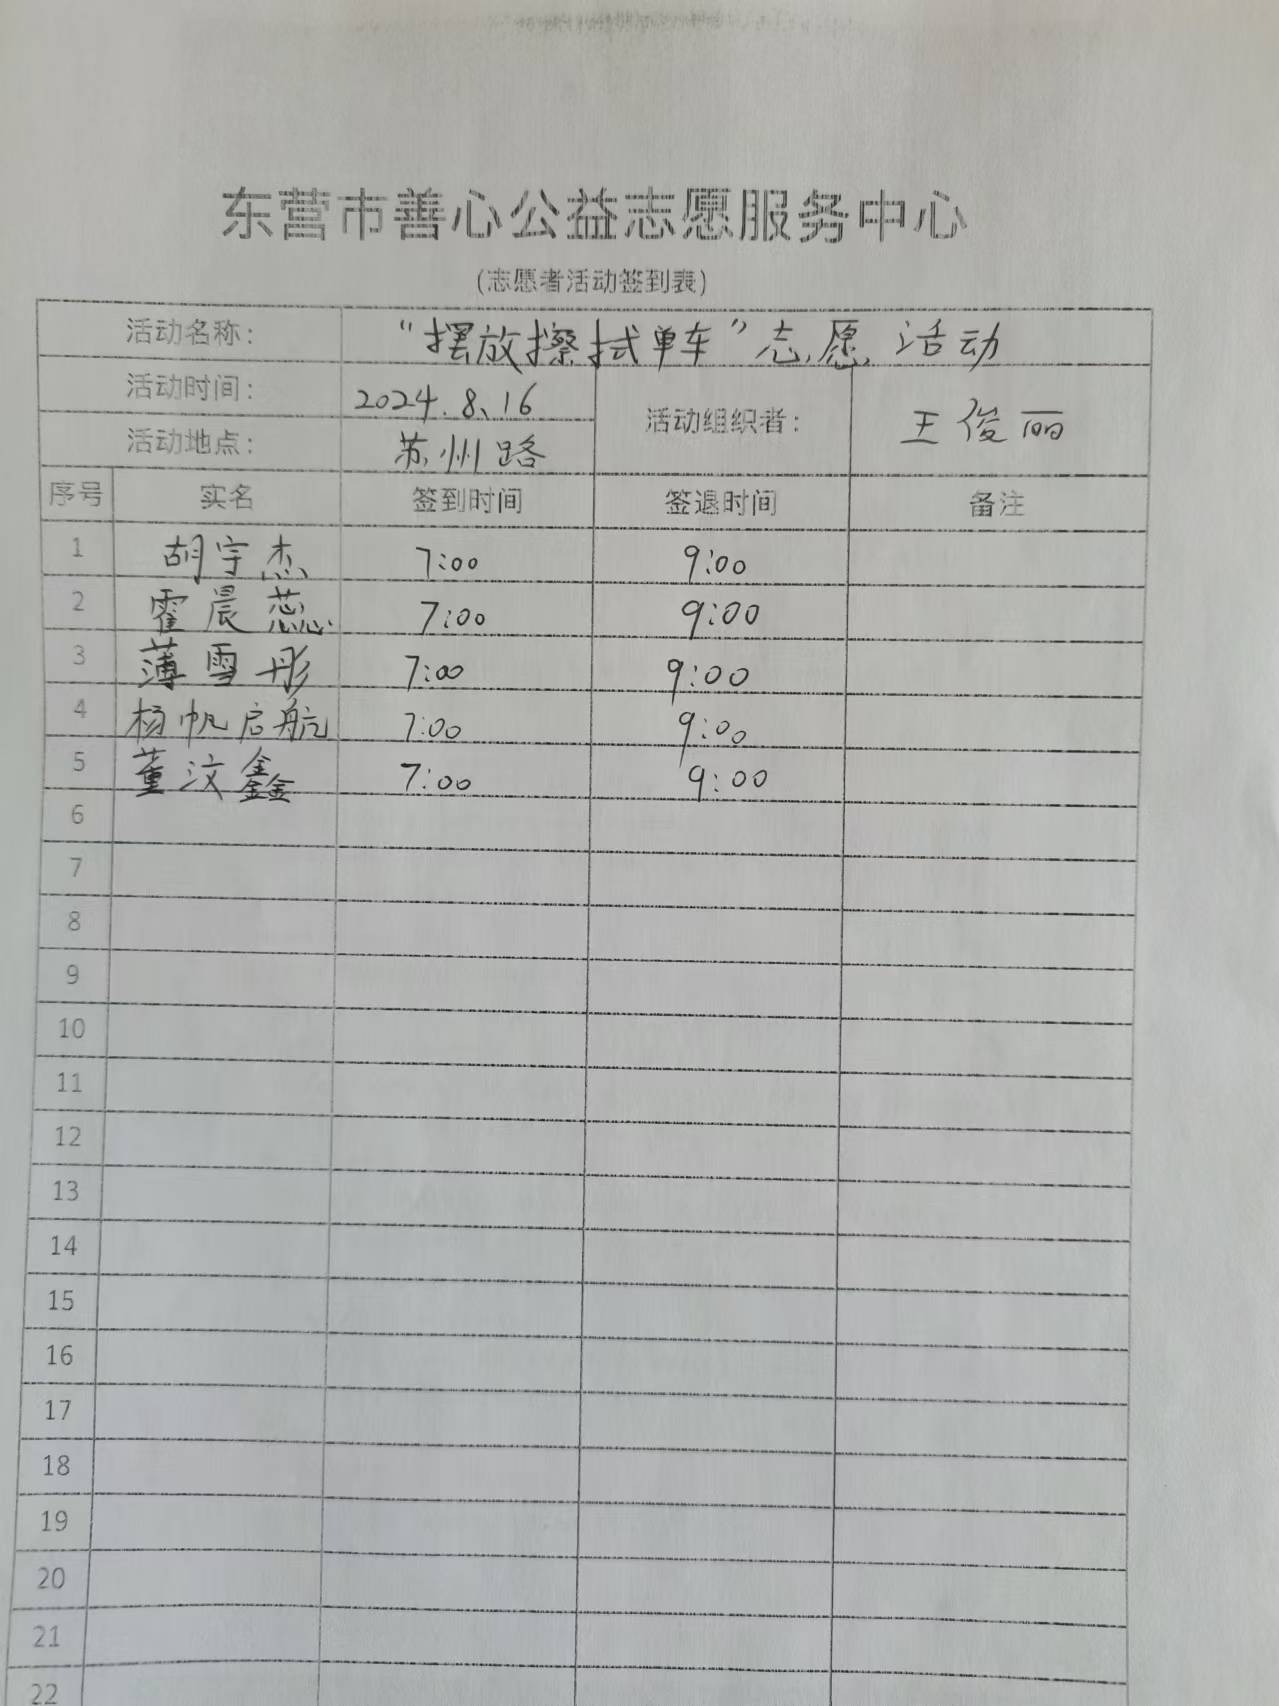 东营市善心公益志愿服务中心
(志愿者活动签到表)
活动名称： “摆放擦拭单车”志愿活动
活动时间： 2024.8.16
活动组织者： 王俊丽
活动地点： 苏州路
序号 实名 签到时间 签退时间 备注
1 胡宇杰 7:00 9:00
2 霍晨蕊 7:00 9:00
3 薄雪彤 7:00 9:00
4 杨帆启航 7:00 9:00
5 董汶鑫 7:00 9:00
6
7
8
9
10
11
12
13
14
15
16
17
18
19
20
21
22